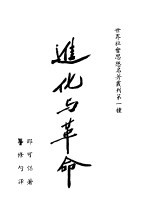 世界社會思想名著叢刊第一種
進化与革命
邵可侶著
畢修勺譯